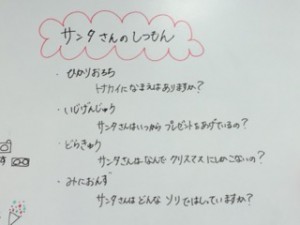 サンタさんのしつもん
・ひかりおろち
トナカイになまえはありますか?
・いじげんじゅう
サンタさんはいつからプレゼントをあげているの?
・どらきゅう
サンタさんはなんでクリスマスにしかこないの?
・みにおんず
サンタさんはどんなソリではしっていますか?